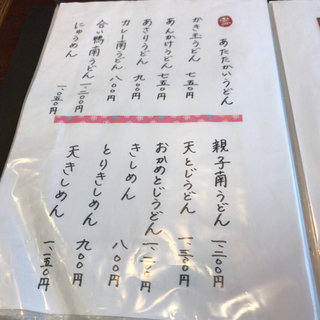 あたたかいうどん
かき玉うどん 七五〇円
あんかけうどん 七五〇円
あさりうどん 九〇〇円
カレー南うどん 八〇〇円
合い鴨南うどん 一、二〇〇円
にゅうめん 一、〇五〇円
親子南うどん 一、二〇〇円
天とじうどん 一、三〇〇円
おかめとじうどん
きしめん 八〇〇円
とりきしめん 九〇〇円
天きしめん 一、一五〇円